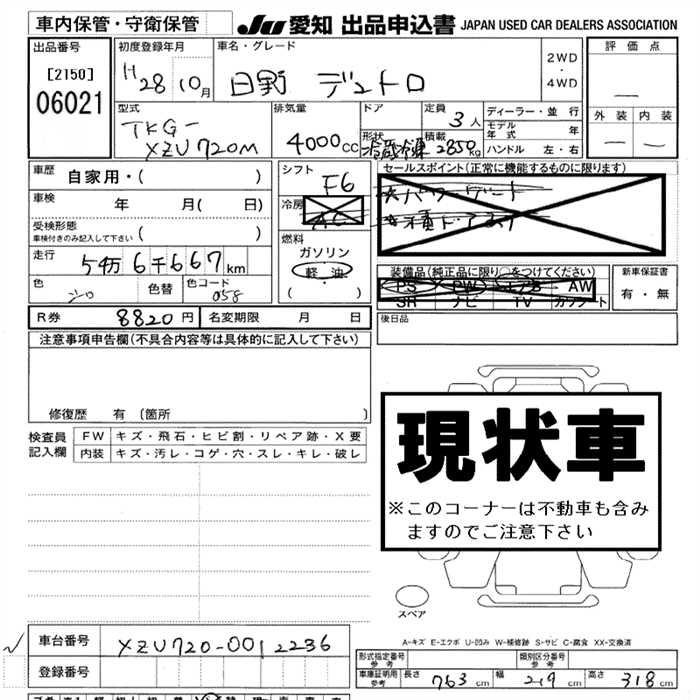 車内保管・守衛保管
JU 愛知 出品申込書 JAPAN USED CAR DEALERS ASSOCIATION
出品番号
[2150]
06021
初度登録年月
H28 10月
車名・グレード
日野 デュトロ
2WD
・
4WD
評価点
—
外装 内装
— —
型式
TKG-
XZU720M
排気量
4000cc
ドア
形状
冷蔵冷凍
定員
3人
積載
2850kg
ディーラー・並行
モデル年式 年
ハンドル 左・右
車歴 自家用・( )
車検 年 月( 日)
受検形態
車検付きのみ記入して下さい ( )
走行 5万6千667km
色 シロ 色替 色コード 058
シフト
F6
冷房
AC
燃料
ガソリン
軽・油
( )
セールスポイント(正常に機能するものに限ります)
装備品(純正品に限り○をつけてください)
PS PW エアB AW
SR ナビ TV カワシート
新車保証書
有・無
R券 8820円 名変期限 月 日
後日品
注意事項申告欄(不具合内容等は具体的に記入して下さい)
修復歴 有(箇所 )
検査員
記入欄
FW キズ・飛石・ヒビ割・リペア跡・X要
内装 キズ・汚レ・コゲ・穴・スレ・キレ・破レ
現状車
※このコーナーは不動車も含み
ますのでご注意下さい
スペア
A-キズ E-エクボ U-凹み W-補修跡 S-サビ C-腐食 XX-交換済
車台番号 XZU720-0012236
登録番号
形式指定番号
参考
類別区分番号
参考
車庫証明用
参考
長さ 763cm 幅 219cm 高さ 318cm